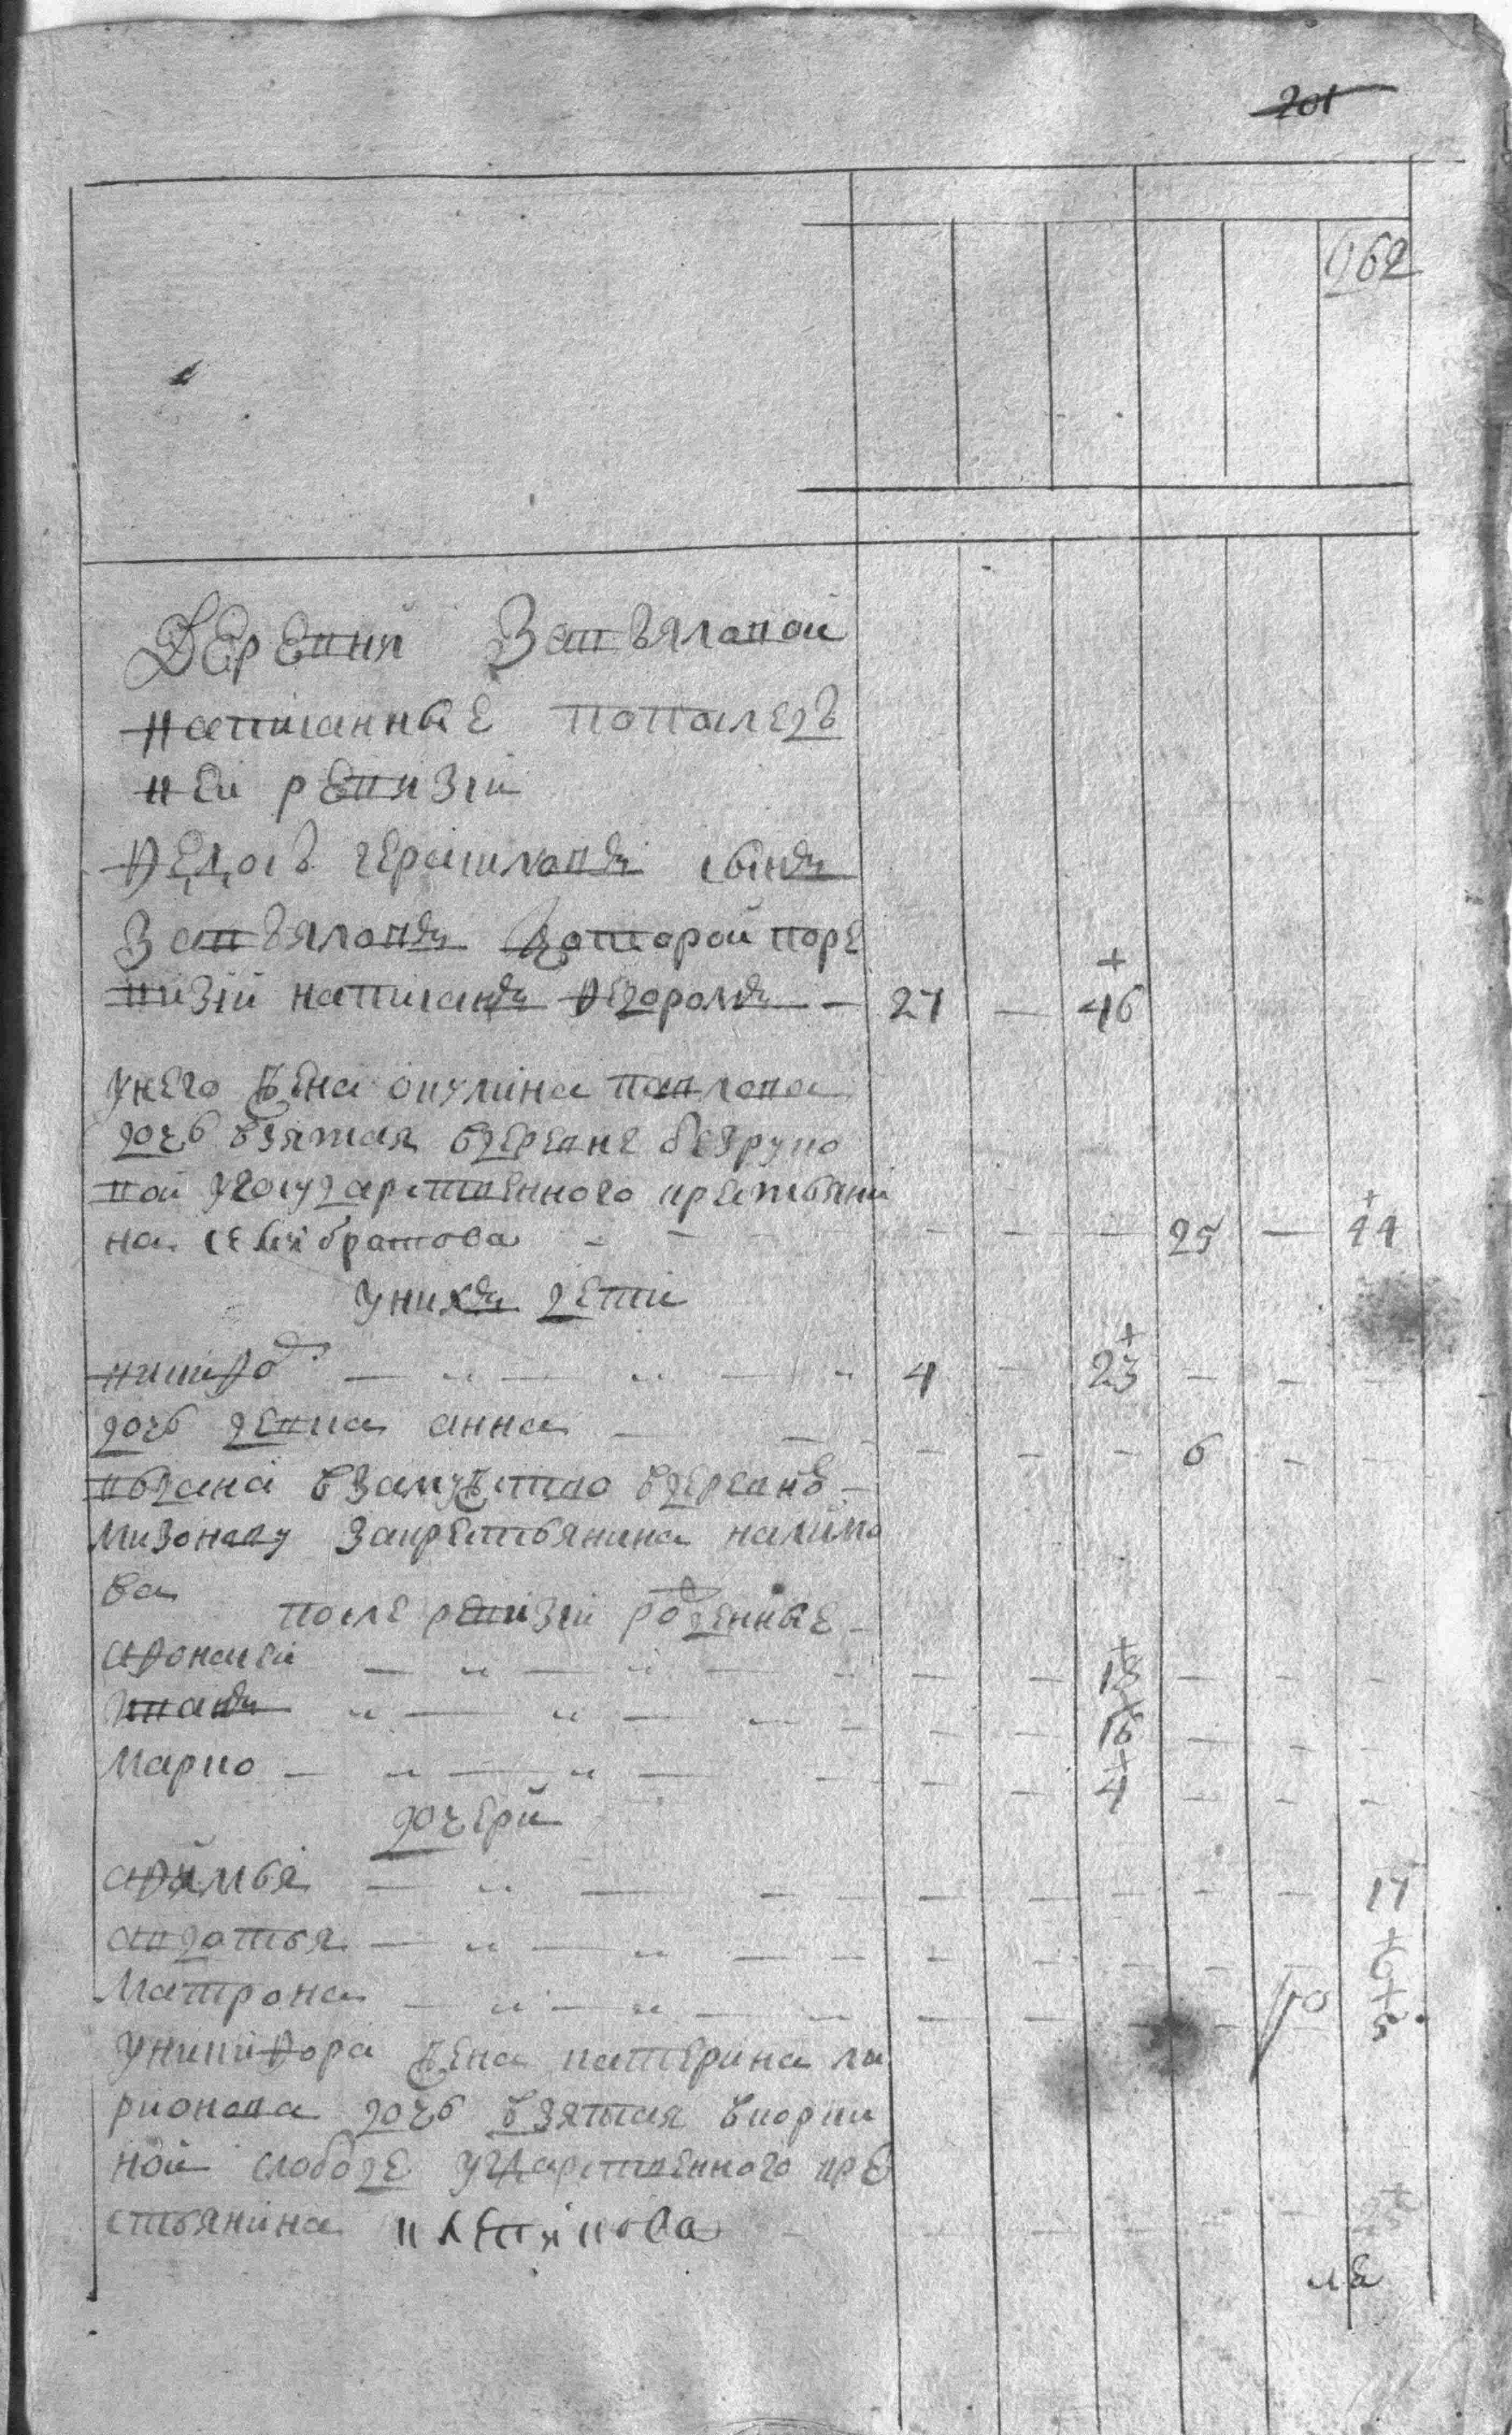 201
962
Деревни Завьяловой
написанные попоследъ
ней ревизiи
Федосъ герасимовъ сынъ
Завьяловъ которой поре
визiи написанъ Федоромъ — 27 — 46
унего жена окулина павлова
дочь взятая вдеревне безруко
вой угосударственного крестьяни
на братова — — — 25 — 44
унихъ дети
никифоръ — 4 — 23 — — —
дочь девка анна — — — — 6 — —
выдана взамужство вдеревнѣ
мизонову закрестьянина налимо
ва
после ревизiи рожденные
афонасей — — — 18 — — —
иванъ — — — 16 — — —
марко — — — 4 — — —
дочери
афимья — — — — — — 17
авдотья — — — — — — 6
матрона — — — — — — 5
уникифора жена катерина ла
рионова дочь взятая вкорки
ной слободе угдарственного кре
стьянина — — — 25